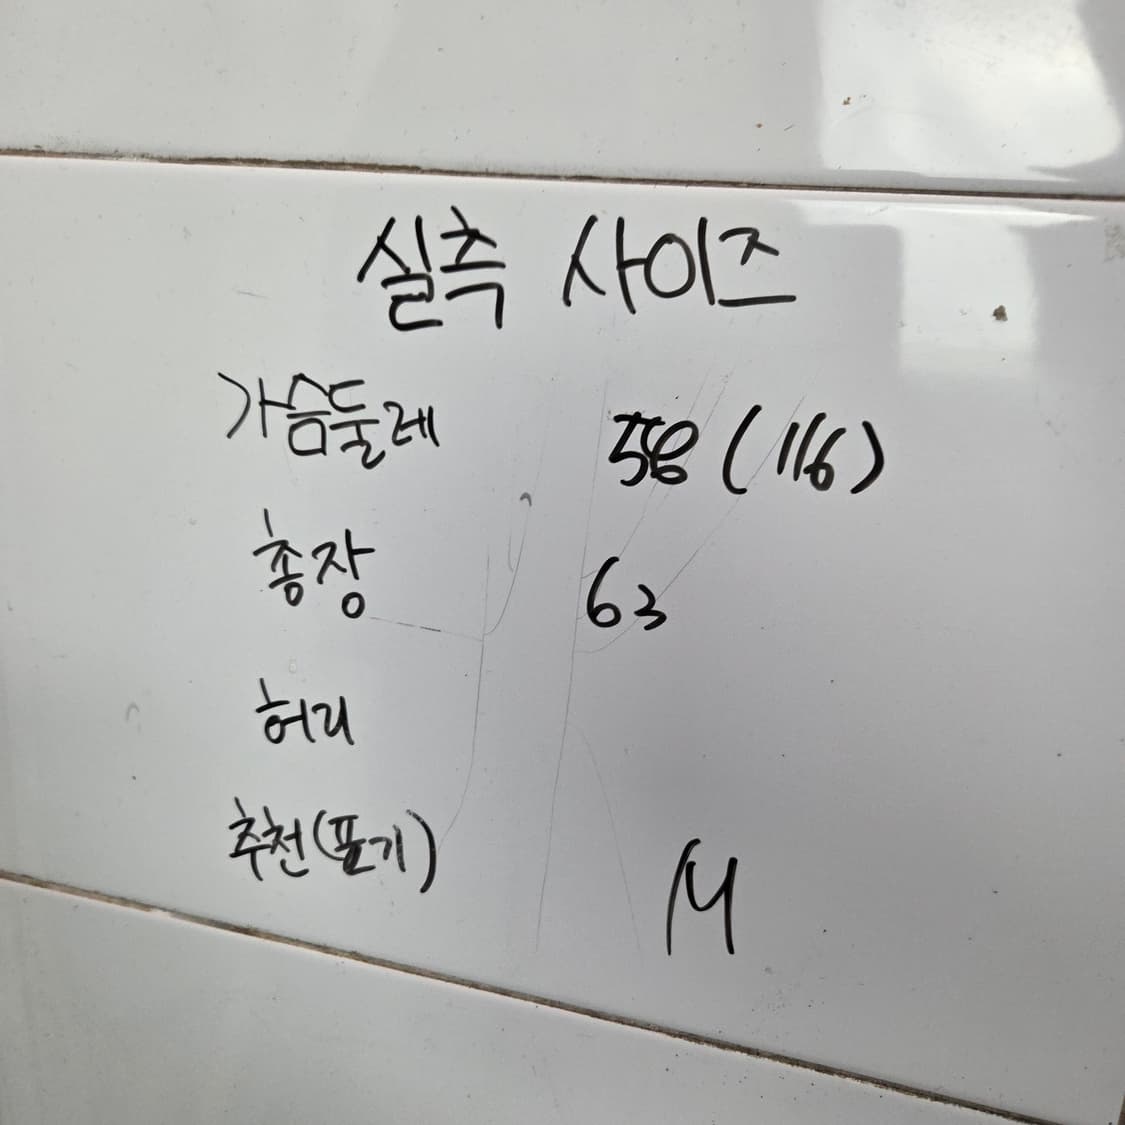 실측 사이즈
가슴둘레 58 (116)
총장 63
허리
추천(표기) M